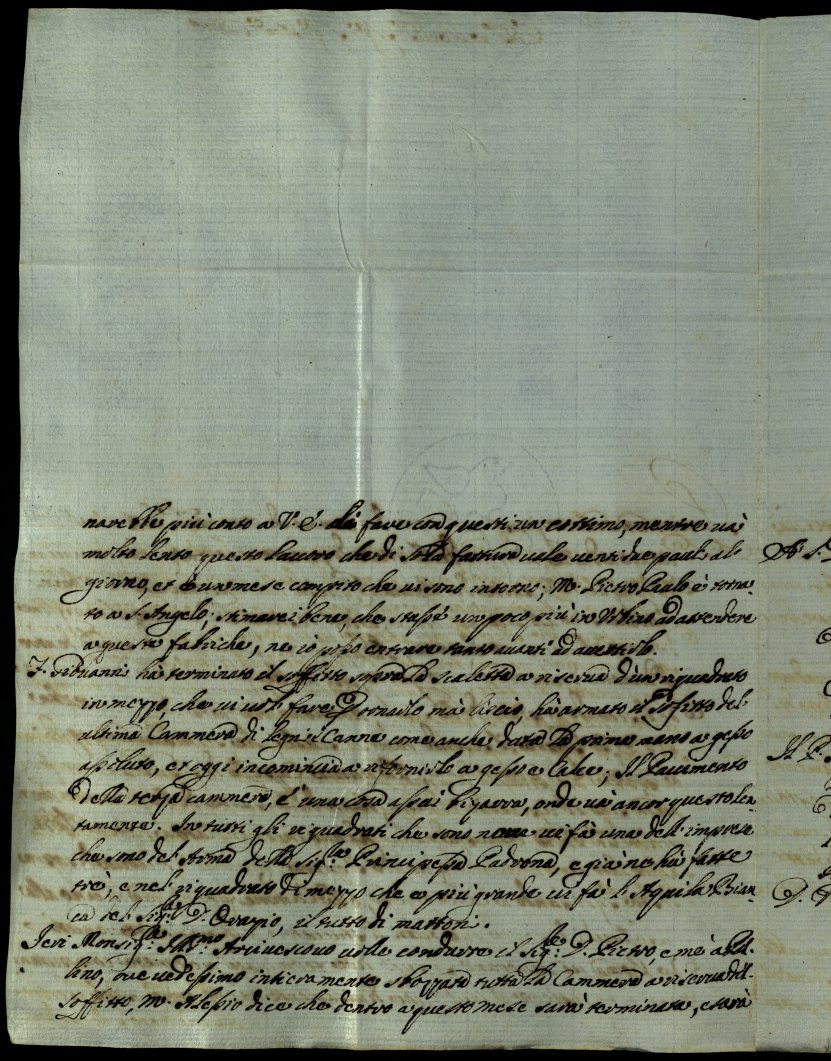 narebbe più conto a V. E. di fare con questi un cottimo, mentre và
molto lento questo lavoro che di sola fattura vale ventidue paoli al
giorno, et è un mese compito che vi sono intorno; M. Pietro Paulo è torna-
to a S. Angelo; stimarei bene, che stasse un poco più in Urbino ad attendere
a queste fabriche, ne io posso entrare tanto avanti ad avertirlo.
F. Giovanni hà terminato il soffitto sopra la scaletta a riserva d'un riquadrato
in mezzo, che vi vol fare P ornarlo mà liscio, hà armato il Soffitto del
ultima Cammera di legni e Canne come anche data la prima mano a gesso
assoluto, et oggi incomincia a rifornirlo a gesso e Calce; Il Pavimento
della terza cammera, è una cosa assai bizarra, onde và ancor questo len-
tamente. In tutti gli riquadrati che sono nove vi fà una dell'imprese
che sono del Arma della Sig.ra Principessa Padrona, e già ne hà fatte
trè, e nel riquadrato di mezzo che è più grande vi fà l'Aquila Bian-
ca del Sig.r D. Orazio, il tutto di mattoni.
Jeri Monsig.re Ill.mo Arcivescovo volle condurre il Sig.re D. Pietro, e mè à
lino, ove vedessimo intieramente sbozzata tutta la Cammera a riserva del
soffitto, M. Alessio dice che dentro a questo mese sarà terminata, e sarà
Il P.
D.